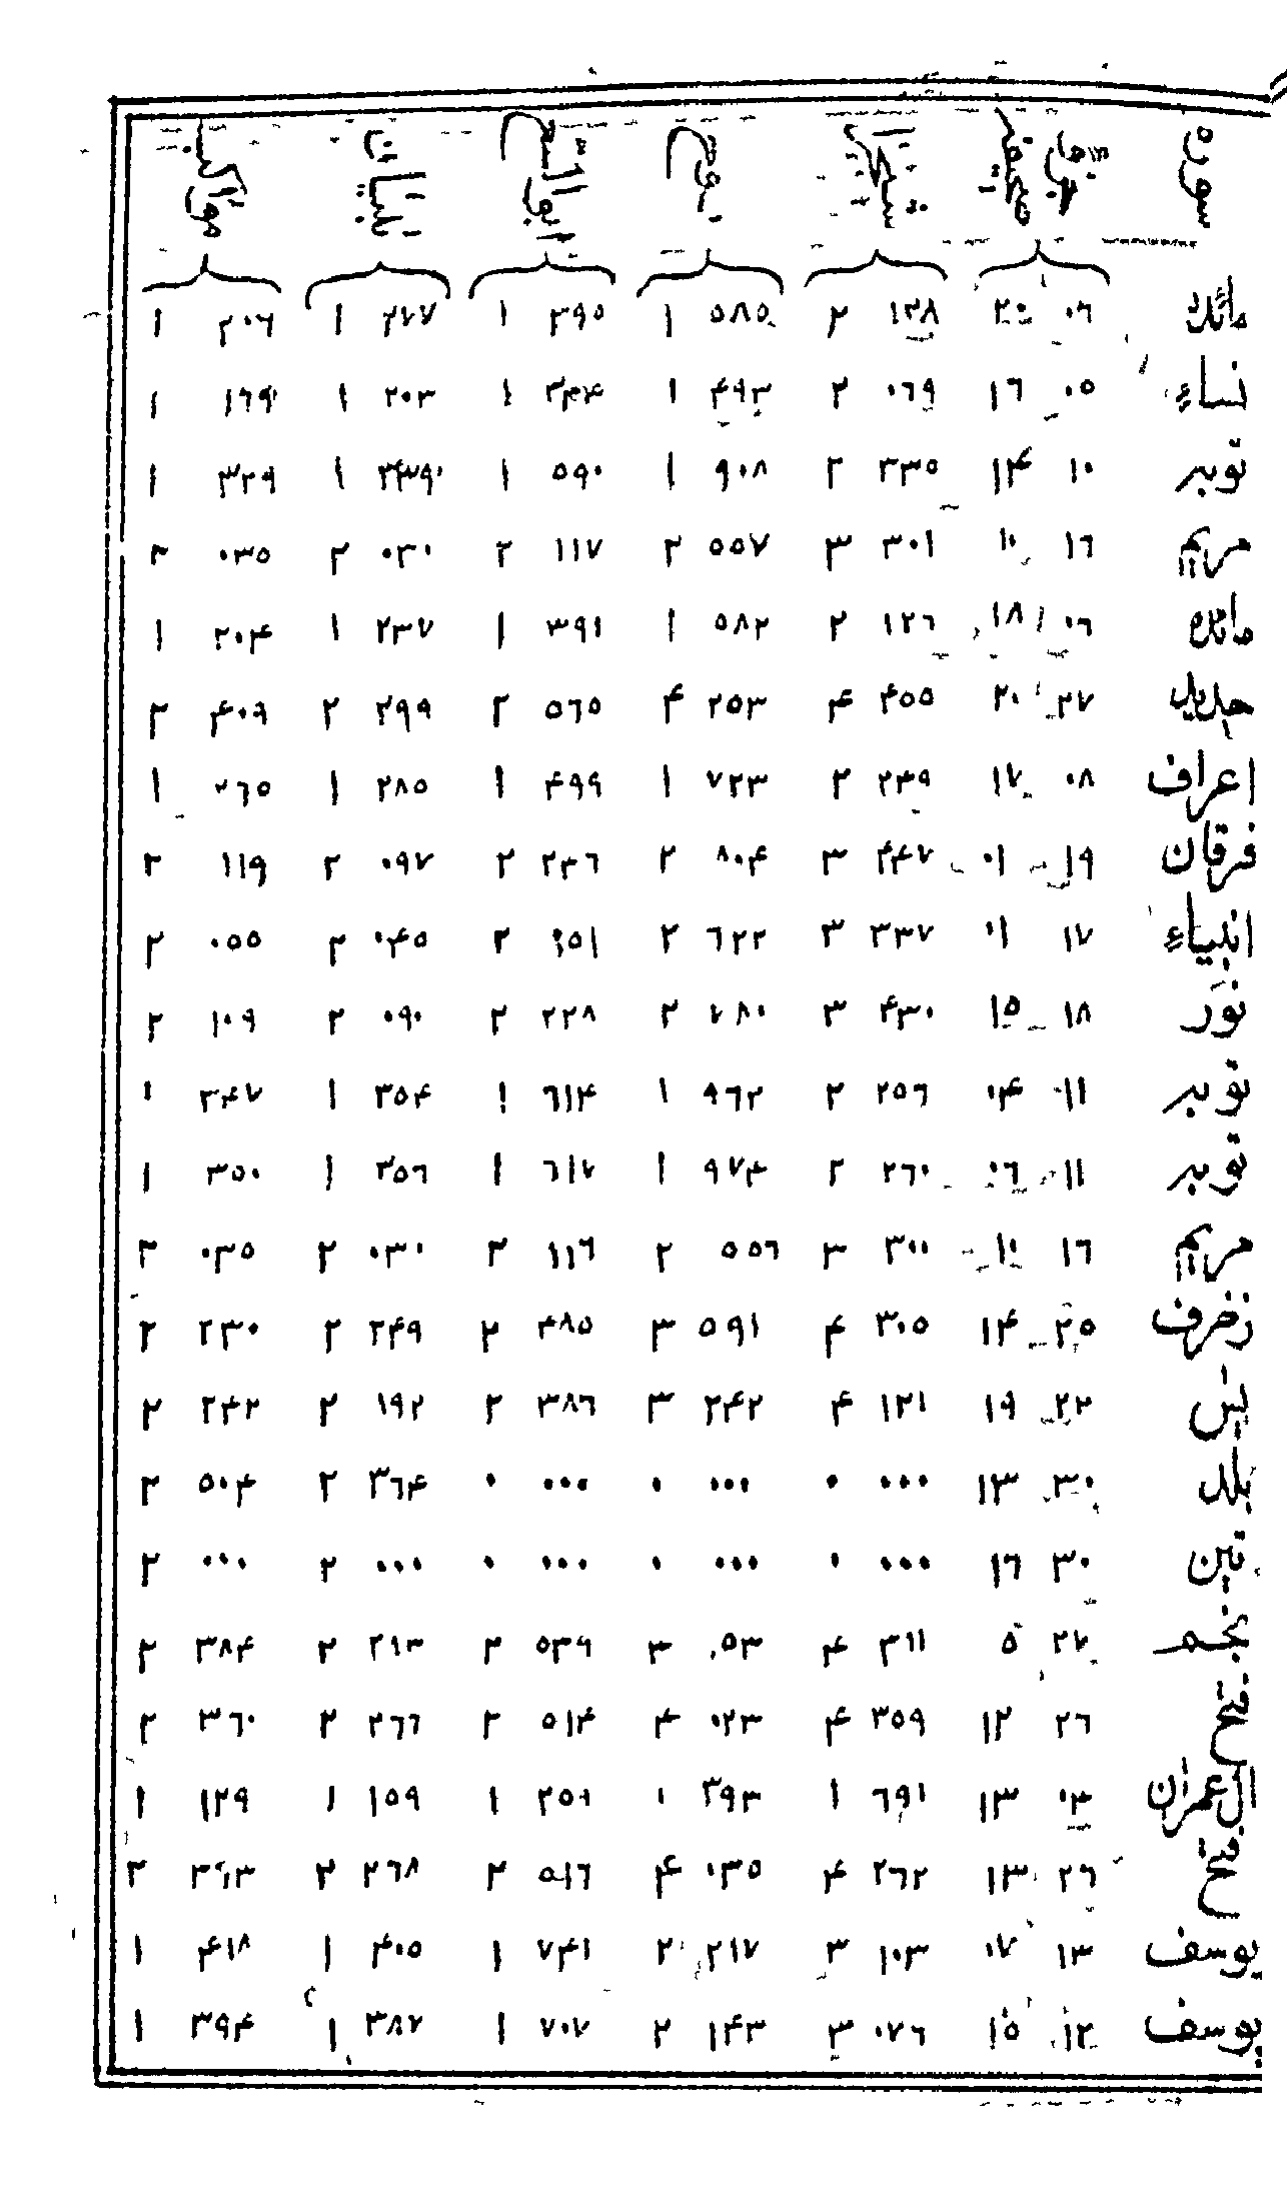 سوره
مائده ۰٦ ۲۰ ۱۳۸ ۲ ۵۸۵ ۱ ۳۹۵ ۱ ۱ ۲۰٦ ۱
نساء ۰۵ ۱٦ ۰٦۹ ۲ ۴۹۳ ۱ ۳۳۴ ۱ ۲۰۳ ۱ ۱٦۹ ۱
توبه ۱۰ ۱۴ ۳۳۵ ۲ ۹۰۸ ۱ ۵۹۰ ۱ ۱ ۳۲۹ ۱
مریم ۱٦ ۱۰ ۳۰۱ ۳ ۵۵۷ ۲ ۱۱۷ ۲ ۰۳۰ ۲ ۰۳۵ ۲
مائده ۰٦ ۱۸ ۱۲٦ ۲ ۵۸۲ ۱ ۳۹۱ ۱ ۲۳۷ ۱ ۲۰۴ ۱
حدید ۲۷ ۲۰ ۴۵۵ ۴ ۲۵۳ ۴ ۵٦۵ ۲ ۲۹۹ ۲ ۴۰۹ ۲
اعراف ۰۸ ۱۷ ۲۴۹ ۲ ۷۲۳ ۱ ۴۹۹ ۱ ۲۸۵ ۱ ۲٦۵ ۱
فرقان ۱۹ ۰۱ ۴۴۷ ۳ ۸۰۴ ۲ ۲۴٦ ۲ ۰۹۷ ۲ ۱۱۹ ۲
انبیاء ۱۷ ۰۱ ۳۳۷ ۳ ٦۲۲ ۲ ۲ ۰۴۵ ۲ ۰۵۵ ۲
نور ۱۸ ۱۵ ۴۳۰ ۳ ۷۸۰ ۲ ۲۲۸ ۲ ۰۹۰ ۲ ۱۰۹ ۲
توبه ۱۱ ۰۴ ۲۵٦ ۲ ۹٦۲ ۱ ٦۱۴ ۱ ۳۵۴ ۱ ۳۴۷ ۱
توبه ۱۱ ۰٦ ۲٦۰ ۲ ۹۷۴ ۱ ٦۱۷ ۱ ۳۵٦ ۱ ۳۵۰ ۱
مریم ۱٦ ۱۰ ۳۰۰ ۳ ۵۵٦ ۲ ۱۱٦ ۲ ۰۳۰ ۲ ۰۳۵ ۲
زخرف ۲۵ ۱۴ ۳۰۵ ۴ ۵۹۱ ۳ ۴۸۵ ۲ ۲۴۹ ۲ ۲۳۰ ۲
یٰس ۲۲ ۱۹ ۱۲۱ ۴ ۲۴۲ ۳ ۳۸٦ ۲ ۱۹۲ ۲ ۲۴۲ ۲
بلد ۳۰ ۱۳ ۰۰۰ ۰ ۰۰۰ ۰ ۰۰۰ ۰ ۳٦۴ ۲ ۵۰۴ ۲
تین ۳۰ ۱٦ ۰۰۰ ۰ ۰۰۰ ۰ ۰۰۰ ۰ ۰۰۰ ۲ ۰۰۰ ۲
نجم ۲۷ ۵ ۳۱۱ ۴ ۰۵۳ ۳ ۵۳۹ ۲ ۲۱۳ ۲ ۳۸۴ ۲
فتح ۲٦ ۱۲ ۳۵۹ ۴ ۰۲۳ ۴ ۵۱۴ ۲ ۲٦٦ ۲ ۳٦۰ ۲
آل عمران ۰۳ ۱۳ ٦۹۱ ۱ ۳۹۳ ۱ ۲۵۹ ۱ ۱۵۹ ۱ ۱۲۹ ۱
فتح ۲٦ ۱۳ ۲٦۲ ۴ ۰۳۵ ۴ ۵۱٦ ۲ ۲٦۸ ۲ ۳٦۳ ۲
یوسف ۱۳ ۰۷ ۱۰۳ ۳ ۲۱۷ ۲ ۷۴۱ ۱ ۴۰۵ ۱ ۴۱۸ ۱
یوسف ۱۲ ۱۵ ۰۷٦ ۳ ۱۴۳ ۲ ۷۰۷ ۱ ۳۸۷ ۱ ۳۹۴ ۱